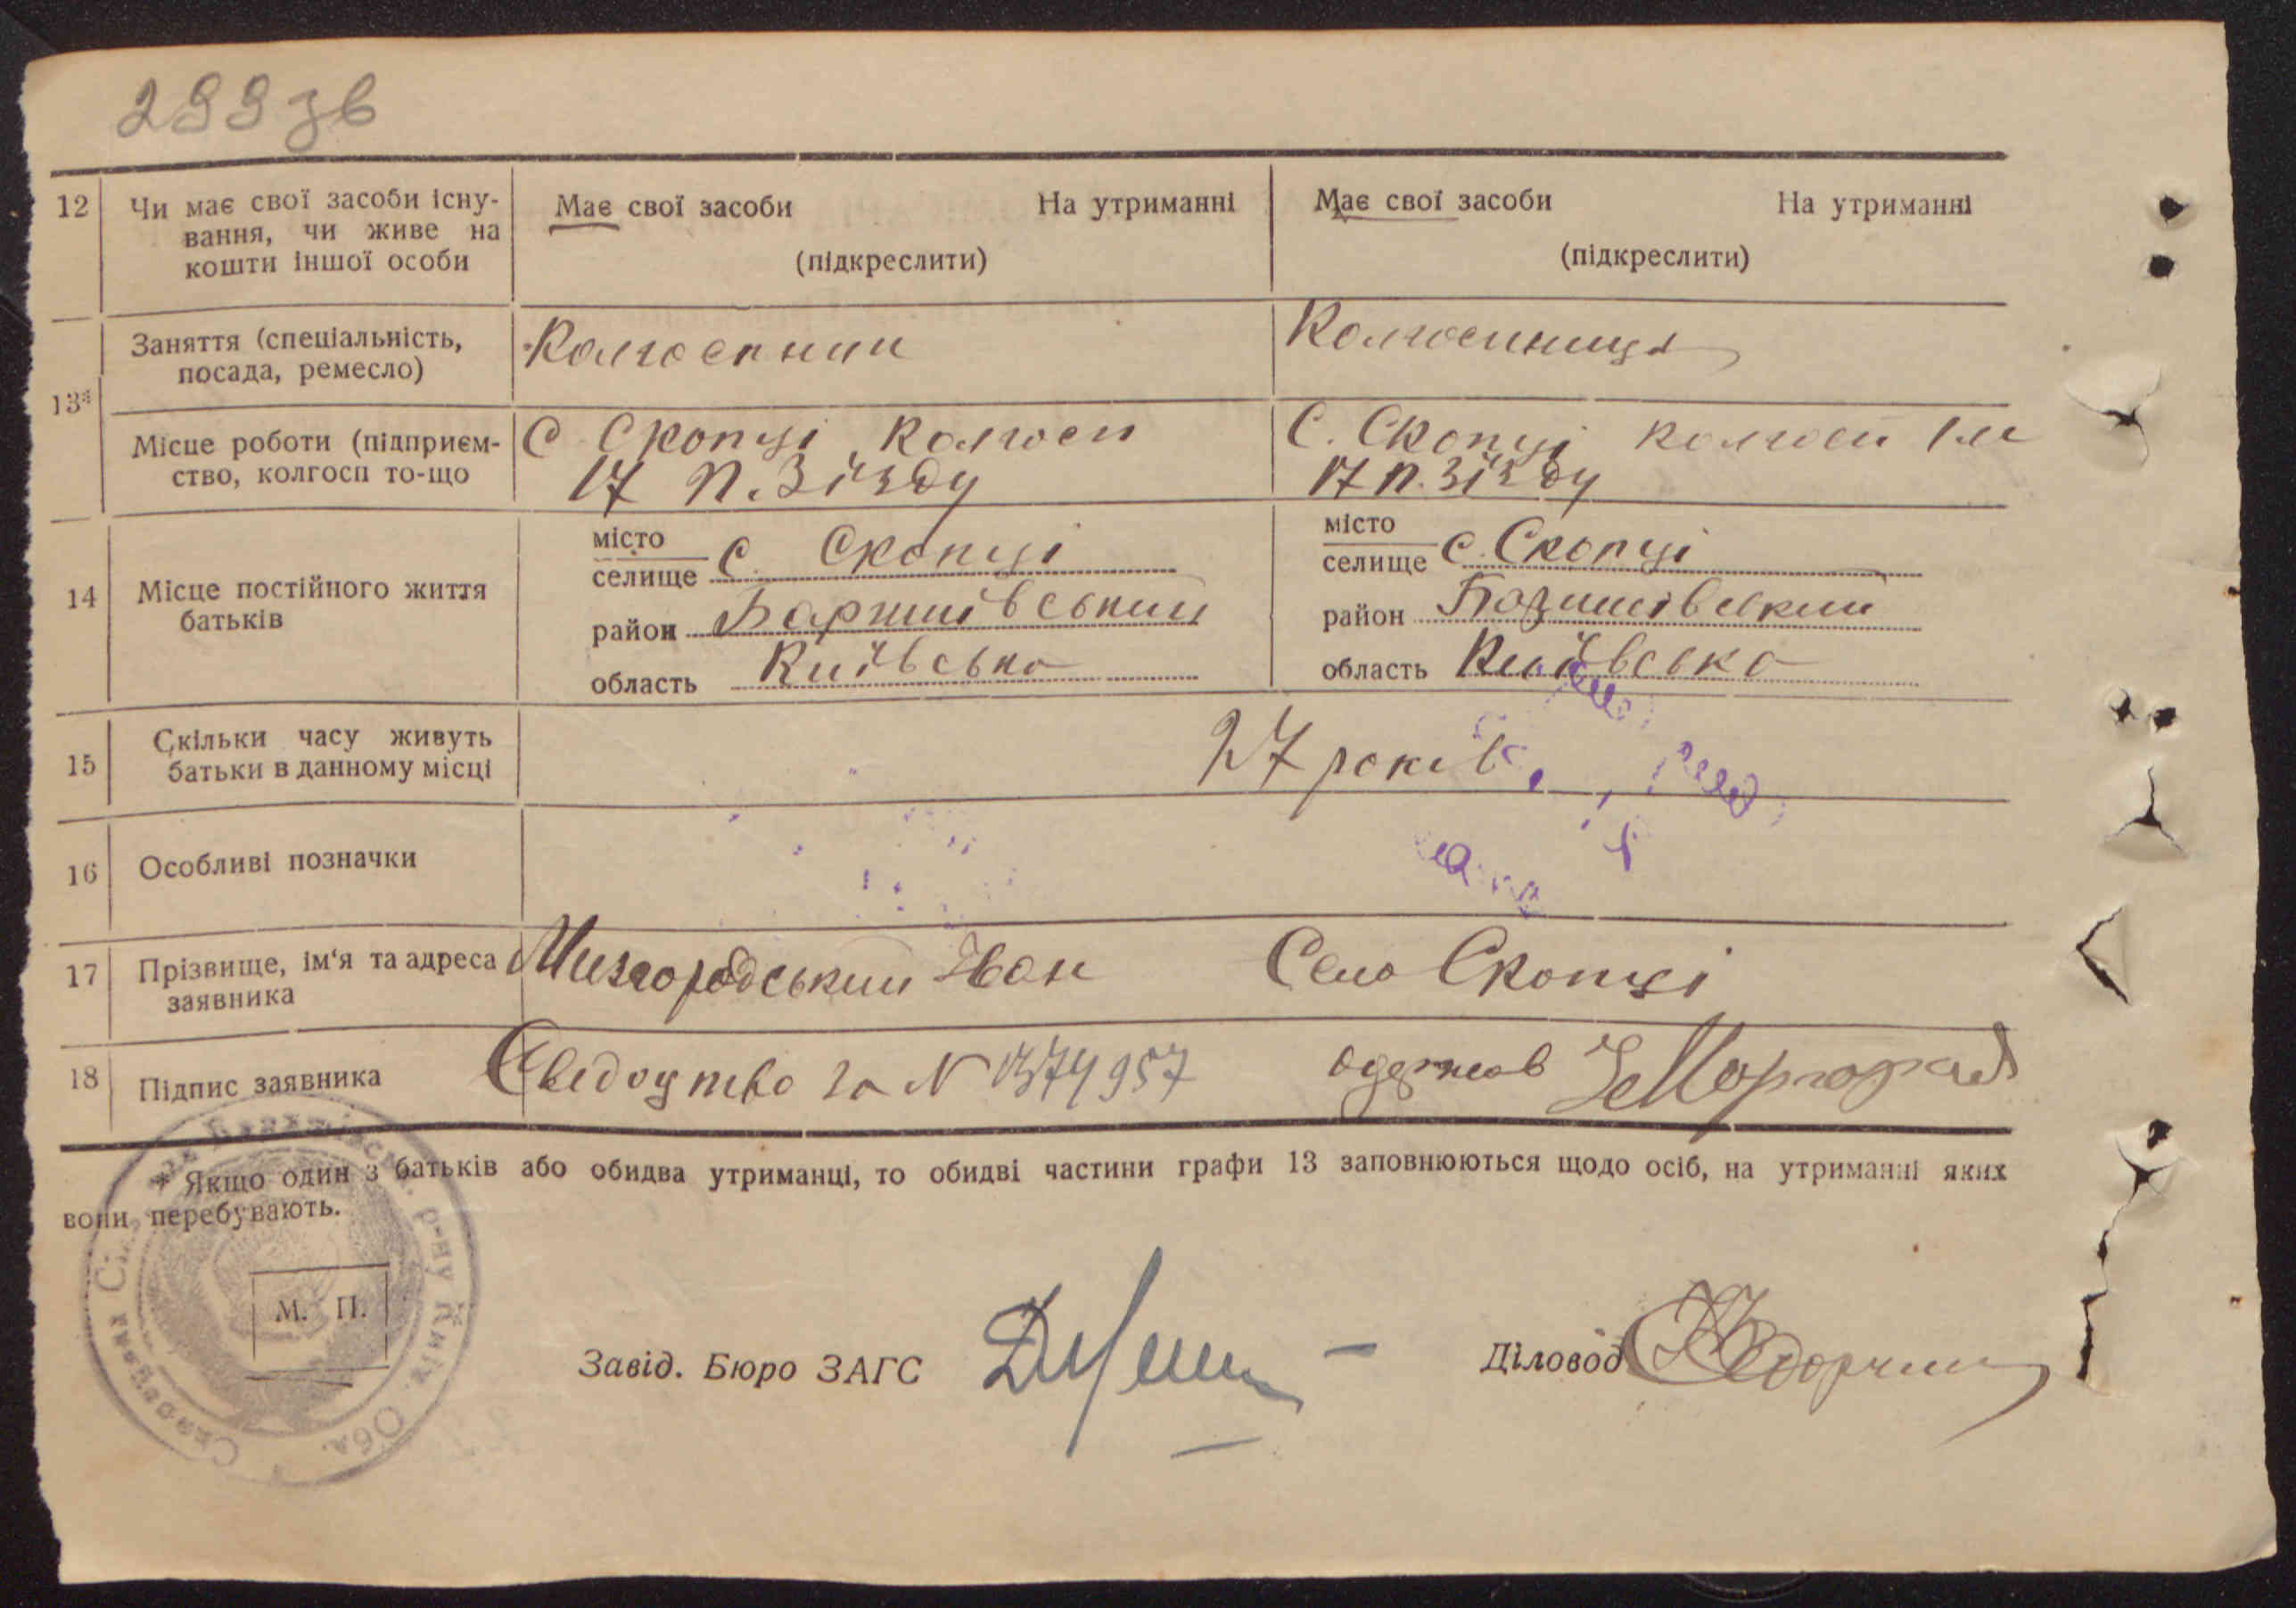 299 зв
12 Чи має свої засоби існу-
вання, чи живе на
кошти іншої особи
Має свої засоби На утриманні
(підкреслити)
Має свої засоби На утриманні
(підкреслити)
13* Заняття (спеціальність,
посада, ремесло)
Колгоспник
Колгоспниця
Місце роботи (підприєм-
ство, колгосп то-що
С Скопці колгосп
17 п. Зїзду
С. Скопці колгосп ім
17 п. Зїзду
14 Місце постійного життя
батьків
місто
селище с. Скопці
район Баришівський
область Київська
місто
селище с. Скопці
район Баришівський
область Київська
15 Скільки часу живуть
батьки в данному місці
27 років
16 Особливі позначки
17 Прізвище, ім'я та адреса
заявника
Миргородський Іван Село Скопці
18 Підпис заявника
Свидоцтво за N 1374957 одержав
* Якщо один з батьків або обидва утриманці, то обидві частини графи 13 заповнюються щодо осіб, на утриманні яких
вони перебувають.
М. П.
Завід. Бюро ЗАГС
Діловод